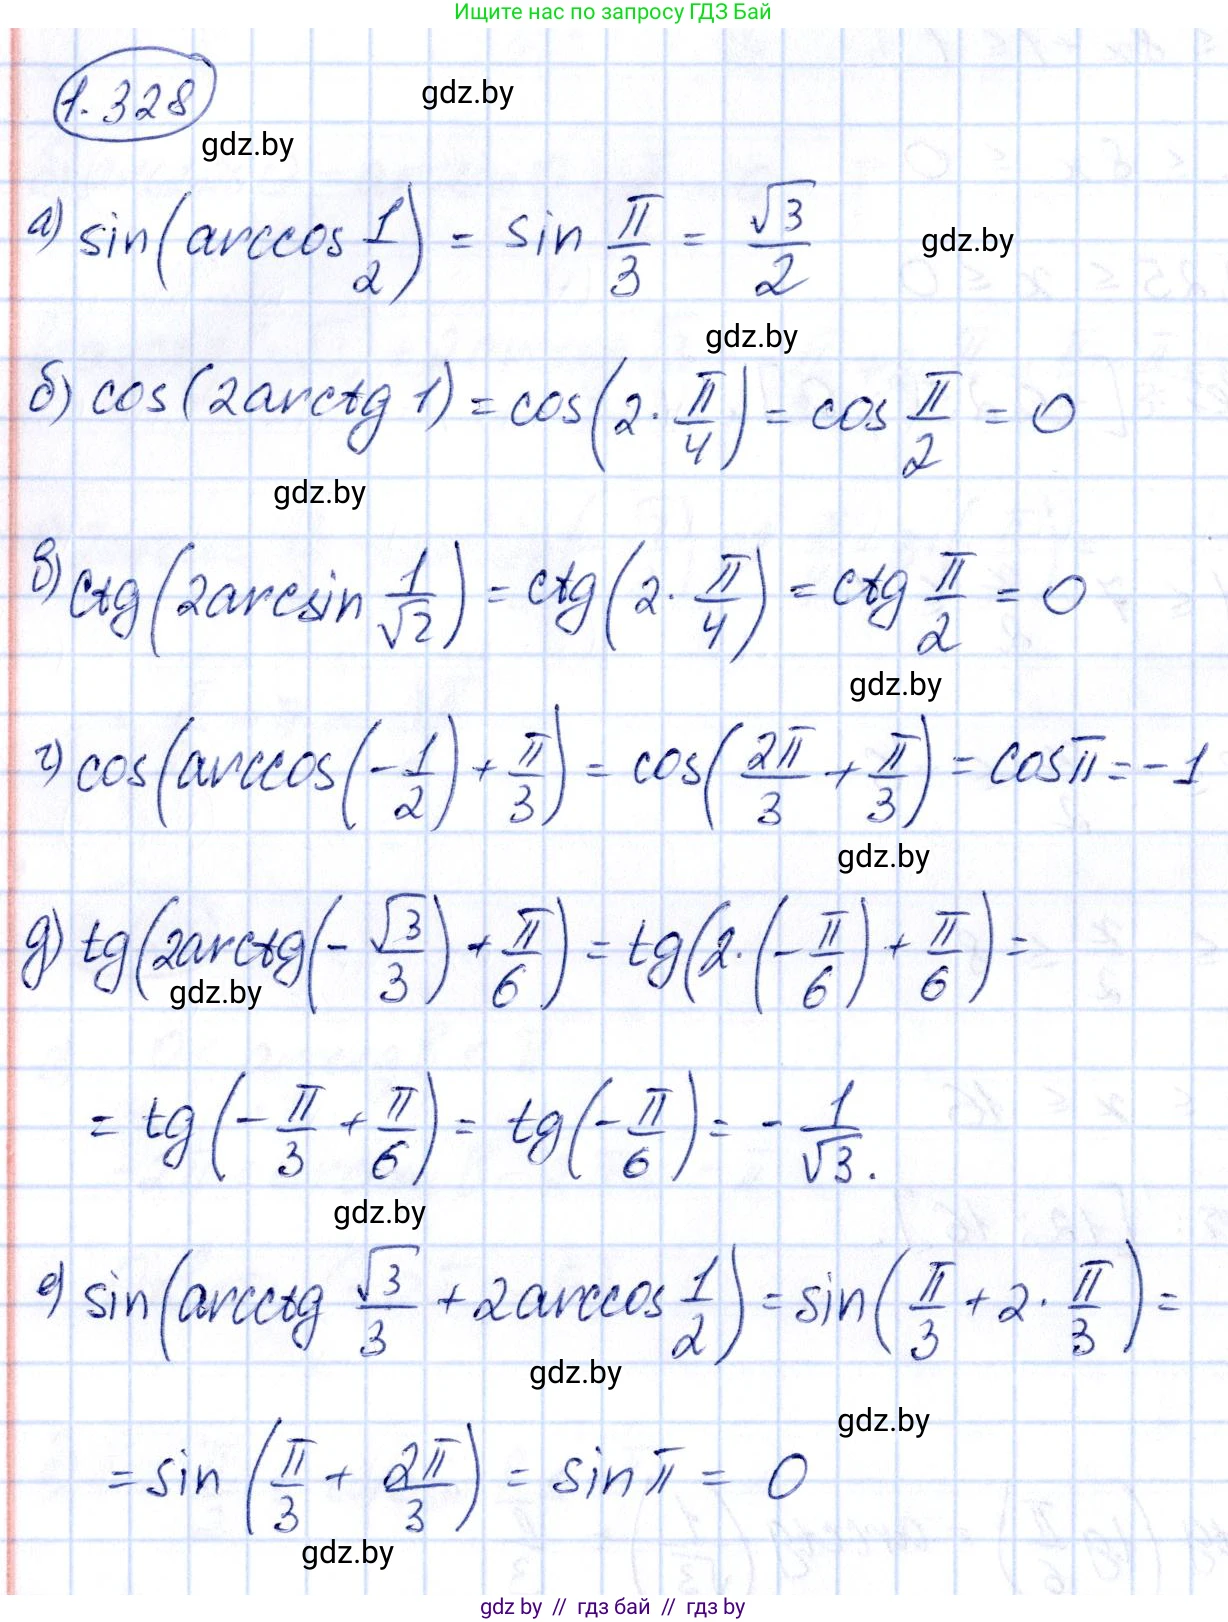 Ищите нас по запросу ГДЗ Бай
1.328
gdz.by
gdz.by
а) sin(arccos 1/2) = sin π/3 = √3/2
gdz.by
gdz.by
б) cos(2arctg 1) = cos(2·π/4) = cos π/2 = 0
gdz.by
в) ctg(2arcsin 1/√2) = ctg(2·π/4) = ctg π/2 = 0
gdz.by
г) cos(arccos(-1/2) + π/3) = cos(2π/3 + π/3) = cosπ = -1
gdz.by
д) tg(2arctg(-√3/3) + π/6) = tg(2·(-π/6) + π/6) =
gdz.by
= tg(-π/3 + π/6) = tg(-π/6) = -1/√3.
gdz.by
е) sin(arcctg √3/3 + 2arccos 1/2) = sin(π/3 + 2·π/3) =
gdz.by
gdz.by
= sin(π/3 + 2π/3) = sin π = 0
gdz.by
gdz by // гдз бай // gdz by